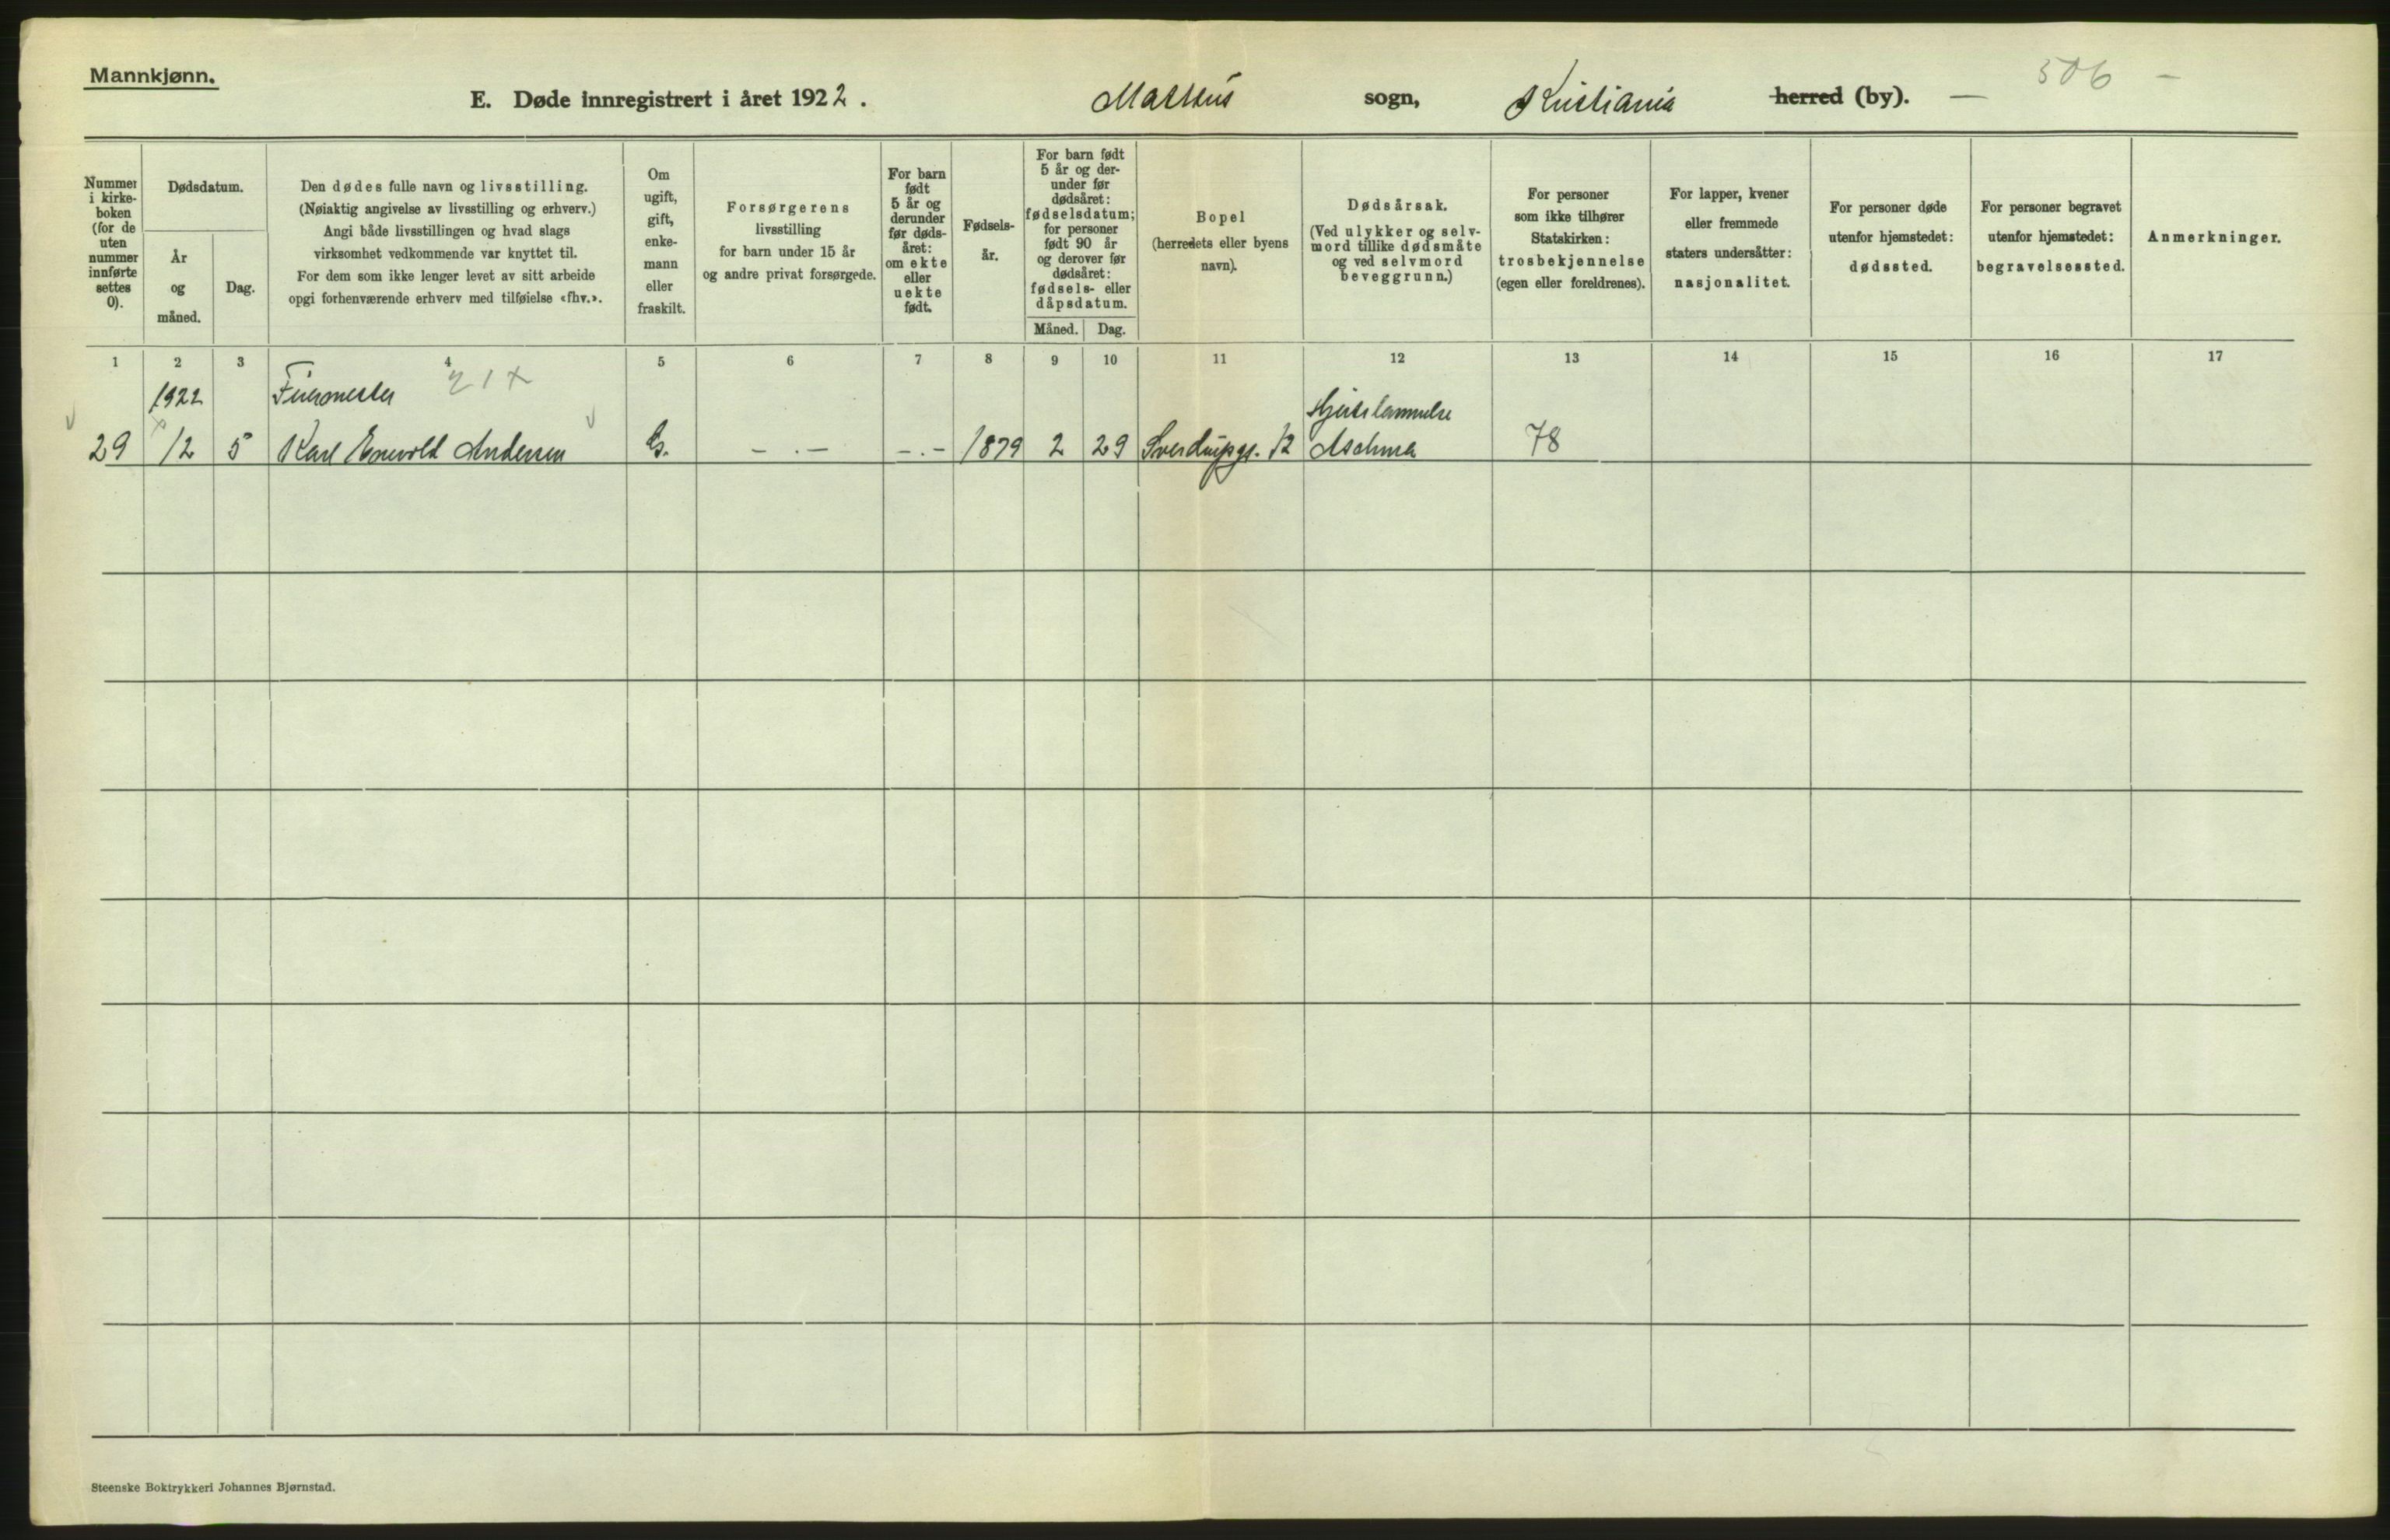 Mannkjønn.
E. Døde innregistrert i året 1922. Markus sogn, Kristiania herred (by). — 506 —
Nummer i kirke- boken (for de uten nummer innførte settes 0).
Dødsdatum.
År og måned.
Dag.
Den dødes fulle navn og livsstilling.
(Nøiaktig angivelse av livsstilling og erhverv.)
Angi både livsstillingen og hvad slags
virksomhet vedkommende var knyttet til.
For dem som ikke lenger levet av sitt arbeide
opgi forhenværende erhverv med tilføielse «fhv.».
Om
ugift,
gift,
enke-
mann
eller
fraskilt.
Forsørgerens
livsstilling
for barn under 15 år
og andre privat forsørgede.
For barn
født
5 år og
derunder
før døds-
året:
om ekte
eller
uekte
født.
Fødsels-
år.
For barn født
5 år og der-
under før
dødsåret:
fødselsdatum;
for personer
født 90 år
og derover før
dødsåret:
fødsels- eller
dåpsdatum.
Måned. Dag.
Bopel
(herredets eller byens
navn).
Dødsårsak.
(Ved ulykker og selv-
mord tillike dødsmåte
og ved selvmord
beveggrunn.)
For personer
som ikke tilhører
Statskirken:
trosbekjennelse
(egen eller foreldrenes).
For lapper, kvener
eller fremmede
staters undersåtter:
nasjonalitet.
For personer døde
utenfor hjemstedet:
dødssted.
For personer begravet
utenfor hjemstedet:
begravelsessted.
Anmerkninger.
1 2 3 4 5 6 7 8 9 10 11 12 13 14 15 16 17
1922 Feiermester 21 x Hjertelammelse
29 12 5 Karl Enevold Andersen G. — . — — . — 1879 2 29 Sverdrupgt. 12 Asthma 78
Steenske Boktrykkeri Johannes Bjørnstad.